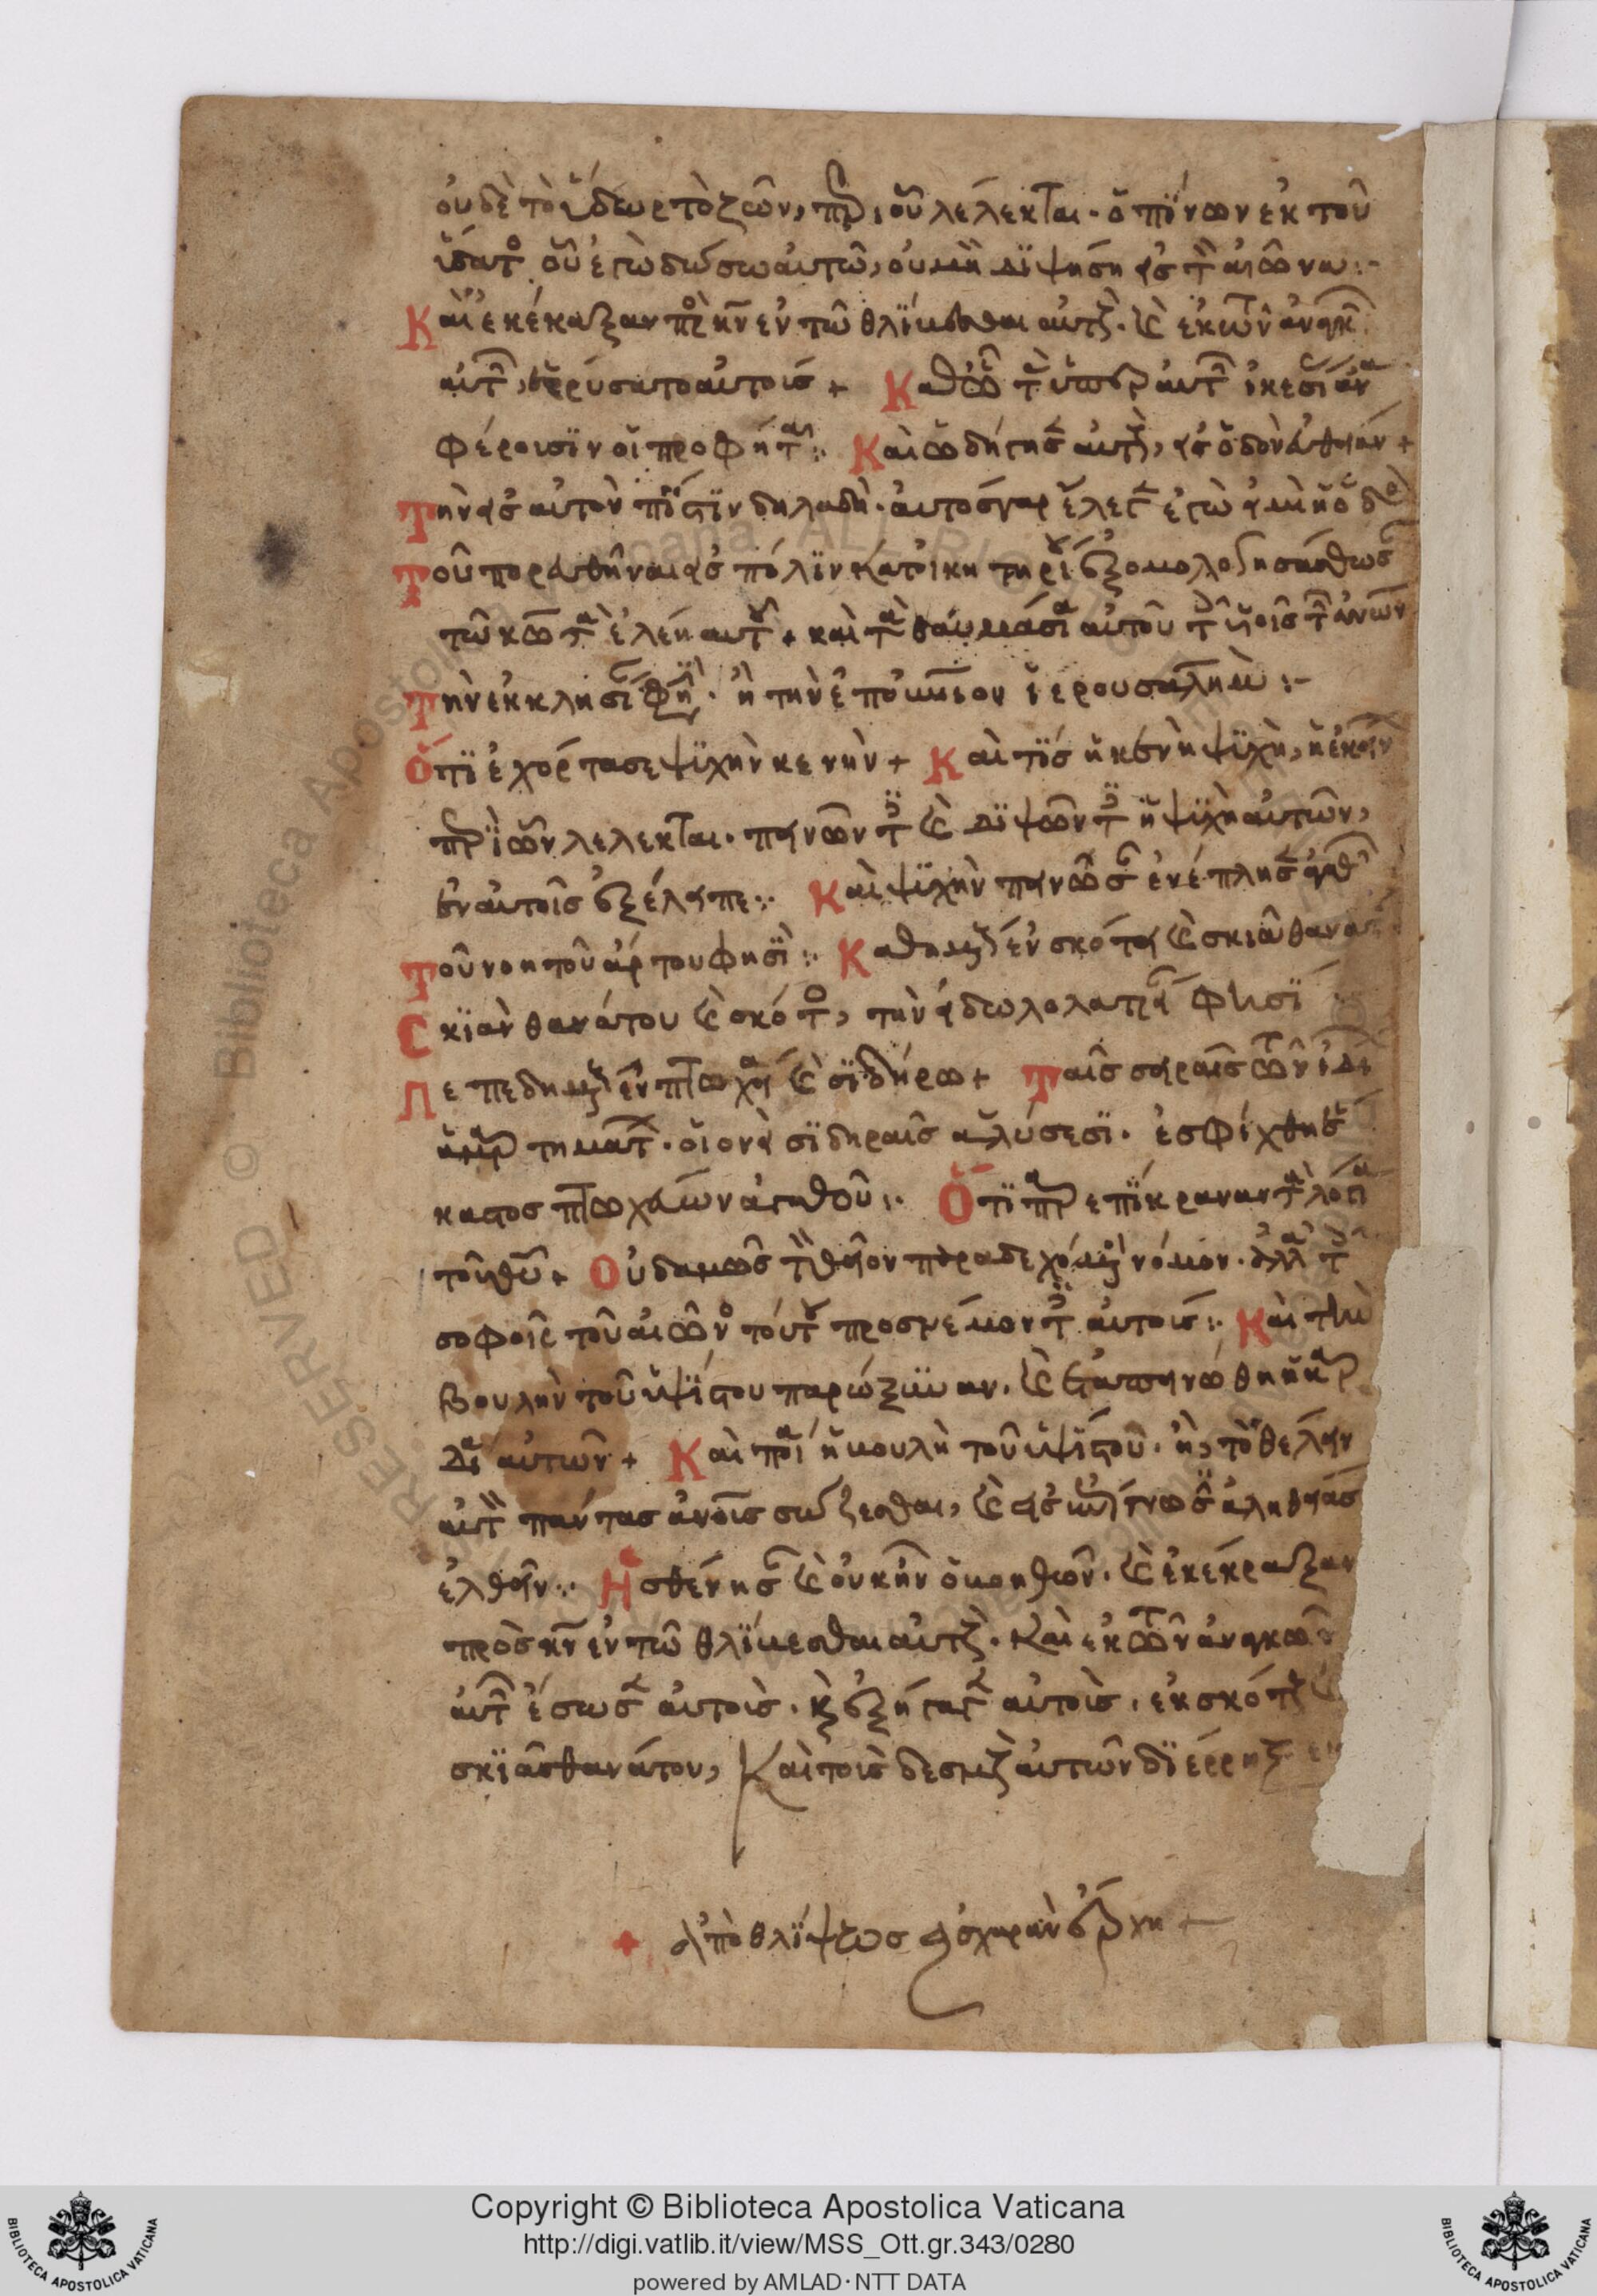 οὐδὲ τὸ ὕδωρ τὸ ζῶν, περὶ οὗ λέλεκται· ὁ πίνων ἐκ τοῦ
ὕδατος οὗ ἐγὼ δώσω αὐτῶ, οὐ μὴ διψήση εἰς τὸν αἰῶνα:-
Καὶ ἐκέκραξαν πρὸς κν ἐν τῶ θλίβεσθαι αὐτούς· καὶ ἐκ τῶν ἀναγκῶν
αὐτῶν, ἐρρύσατο αὐτοὺς + Καθ' ὃν τὰς ὑπὲρ αὐτῶν ἱκεσίας ἀνα
φέρουσιν οἱ προφῆται:· Καὶ ὡδήγησεν αὐτοὺς, εἰς ὁδὸν εὐθεῖαν +
Τὴν εἰς αὐτὸν πίστιν δηλαδή· αὐτὸς γὰρ ἔλεγεν ἐγὼ εἰμὶ ἡ ὁδός
Τοῦ πορευθῆναι εἰς πόλιν κατοικητηρίου ἐξομολογησάσθωσαν
τῶ κω τὰ ἐλέη αὐτοῦ + καὶ τὰ θαυμάσια αὐτοῦ τοῖς υἱοῖς τῶν ανων
Τὴν ἐκκλησίαν φησὶ· ἢ τὴν ἐπουράνιον ἱερουσαλήμ:-
Ὅτι ἐχόρτασε ψυχὴν κενὴν + Καὶ τίς ἡ κενὴ ψυχὴ, ἢ ἐκείνη
περὶ ὧν λέλεκται· πεινῶντες καὶ διψῶντες ἡ ψυχὴ αὐτῶν,
ἐν αὐτοῖς ἐξέλιπε:· Καὶ ψυχὴν πεινῶσαν ἐνέπλησεν ἀγαθῶν
Τοῦ νοητοῦ ἄρτου φησὶ:· Καθημένους ἐν σκότει καὶ σκιᾶ θανάτου
Σκιὰν θανάτου καὶ σκότος, τὴν εἰδωλολατρείαν φησὶ
Πεπεδημένους ἐν πτωχεία καὶ σιδήρω + Ταῖς σειραῖς τῶν ἰδίων
ἁμαρτημάτων· οἱονεὶ σιδηραῖς ἁλύσεσι· ἐσφίχθησαν
πτωχεύων ἀγαθοῦ:· Ὅτι παρεπίκραναν τὰ λόγια
τοῦ θυ + Οὐδαμῶς τὸν θεῖον παραδεχόμενοι νόμον· ἀλλὰ τοῖς
σοφοῖς τοῦ αἰῶνος τούτου προσνέμοντες αὐτούς:· Καὶ τὴν
βουλὴν τοῦ ὑψίστου παρώξυναν. καὶ ἐταπεινώθη ἡ καρ
δία αὐτῶν + Καὶ ποία ἡ βουλὴ τοῦ ὑψίστου· ἢ, τὸ θέλειν
αὐτὸν πάντας ανους σώζεσθαι, καὶ εἰς ἐπίγνωσιν ἀληθείας
ἐλθεῖν:· Ἠσθένησαν καὶ οὐκ ἦν ὁ βοηθῶν. καὶ ἐκέκραξαν
πρὸς κν ἐν τῶ θλίβεσθαι αὐτούς· Καὶ ἐκ τῶν ἀναγκῶν
αὐτῶν ἔσωσεν αὐτοὺς· καὶ ἐξήγαγεν αὐτοὺς· ἐκ σκότους καὶ
σκιᾶς θανάτου, Καὶ τοὺς δεσμοὺς αὐτῶν διέρρηξεν
+ ἀπὸ θλίψεως εἰς χαρὰν
Copyright © Biblioteca Apostolica Vaticana
http://digi.vatlib.it/view/MSS_Ott.gr.343/0280
powered by AMLAD · NTT DATA
BIBLIOTECA APOSTOLICA VATICANA
BIBLIOTECA APOSTOLICA VATICANA